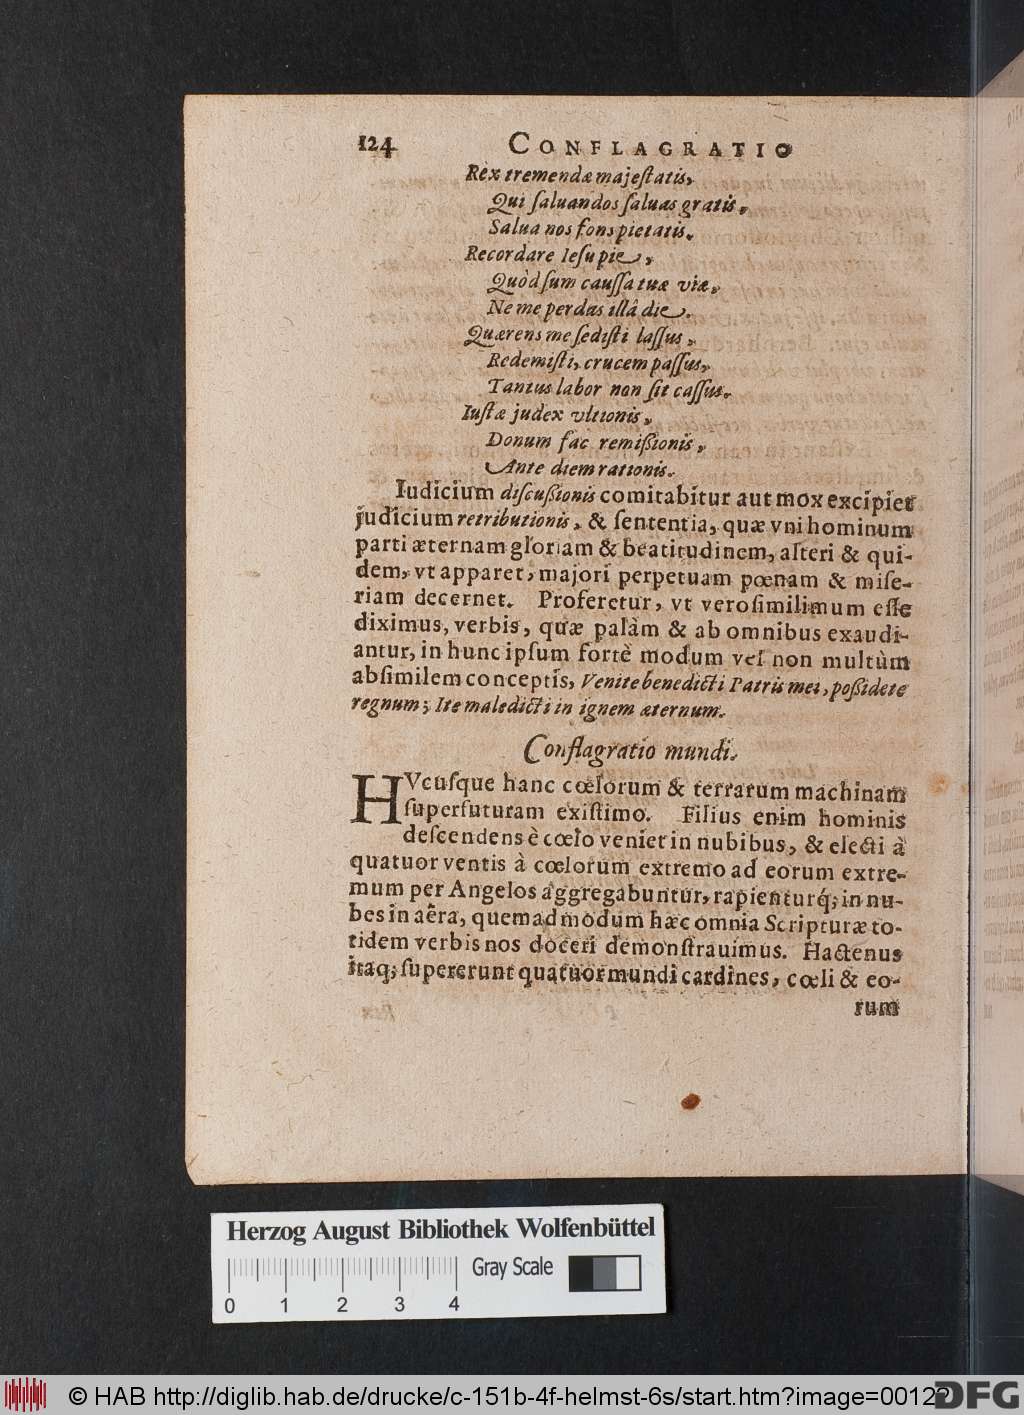 124 CONFLAGRATIO
Rex tremendæ majeſtatis,
Qui ſaluandos ſaluas gratis,
Salua nos fons pietatis.
Recordare Ieſu pie,
Quòd ſum cauſſa tuæ viæ,
Ne me perdas illâ die.
Quærens me ſediſti laſſus,
Redemiſti, crucem paſſus,
Tantus labor non ſit caſſus.
Iuſtæ judex vltionis,
Donum fac remißionis,
Ante diem rationis.
Iudicium diſcußionis comitabitur aut mox excipiet
judicium retributionis, & ſententia, quæ vni hominum
parti æternam gloriam & beatitudinem, alteri & qui-
dem, vt apparet, majori perpetuam pœnam & miſe-
riam decernet. Proferetur, vt veroſimilimum eſſe
diximus, verbis, quæ palàm & ab omnibus exaudi-
antur, in hunc ipſum fortè modum vel non multùm
abſimilem conceptis, Venite benedicti Patris mei, poßidete
regnum; Ite maledicti in ignem æternum.
Conflagratio mundi.
HVcuſque hanc cœlorum & terrarum machinam
ſuperfuturam exiſtimo. Filius enim hominis
deſcendens è cœlo veniet in nubibus, & electi à
quatuor ventis à cœlorum extremo ad eorum extre-
mum per Angelos aggregabuntur, rapienturq́; in nu-
bes in aëra, quemadmodum hæc omnia Scripturæ to-
tidem verbis nos doceri demonſtrauimus. Hactenus
itaq; ſupererunt quatuor mundi cardines, cœli & eo-
rum
Herzog August Bibliothek Wolfenbüttel
Gray Scale
0 1 2 3 4
© HAB http://diglib.hab.de/drucke/c-151b-4f-helmst-6s/start.htm?image=00122
DFG